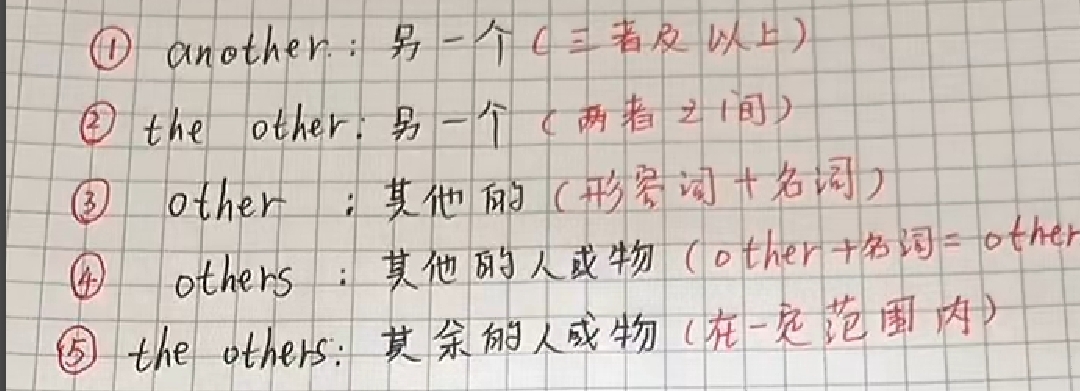 ① another: 另一个(三者及以上)
② the other: 另一个(两者之间)
③ other : 其他的(形容词+名词)
④ others : 其他的人或物(other+名词=other
⑤ the others: 其余的人或物(在一定范围内)